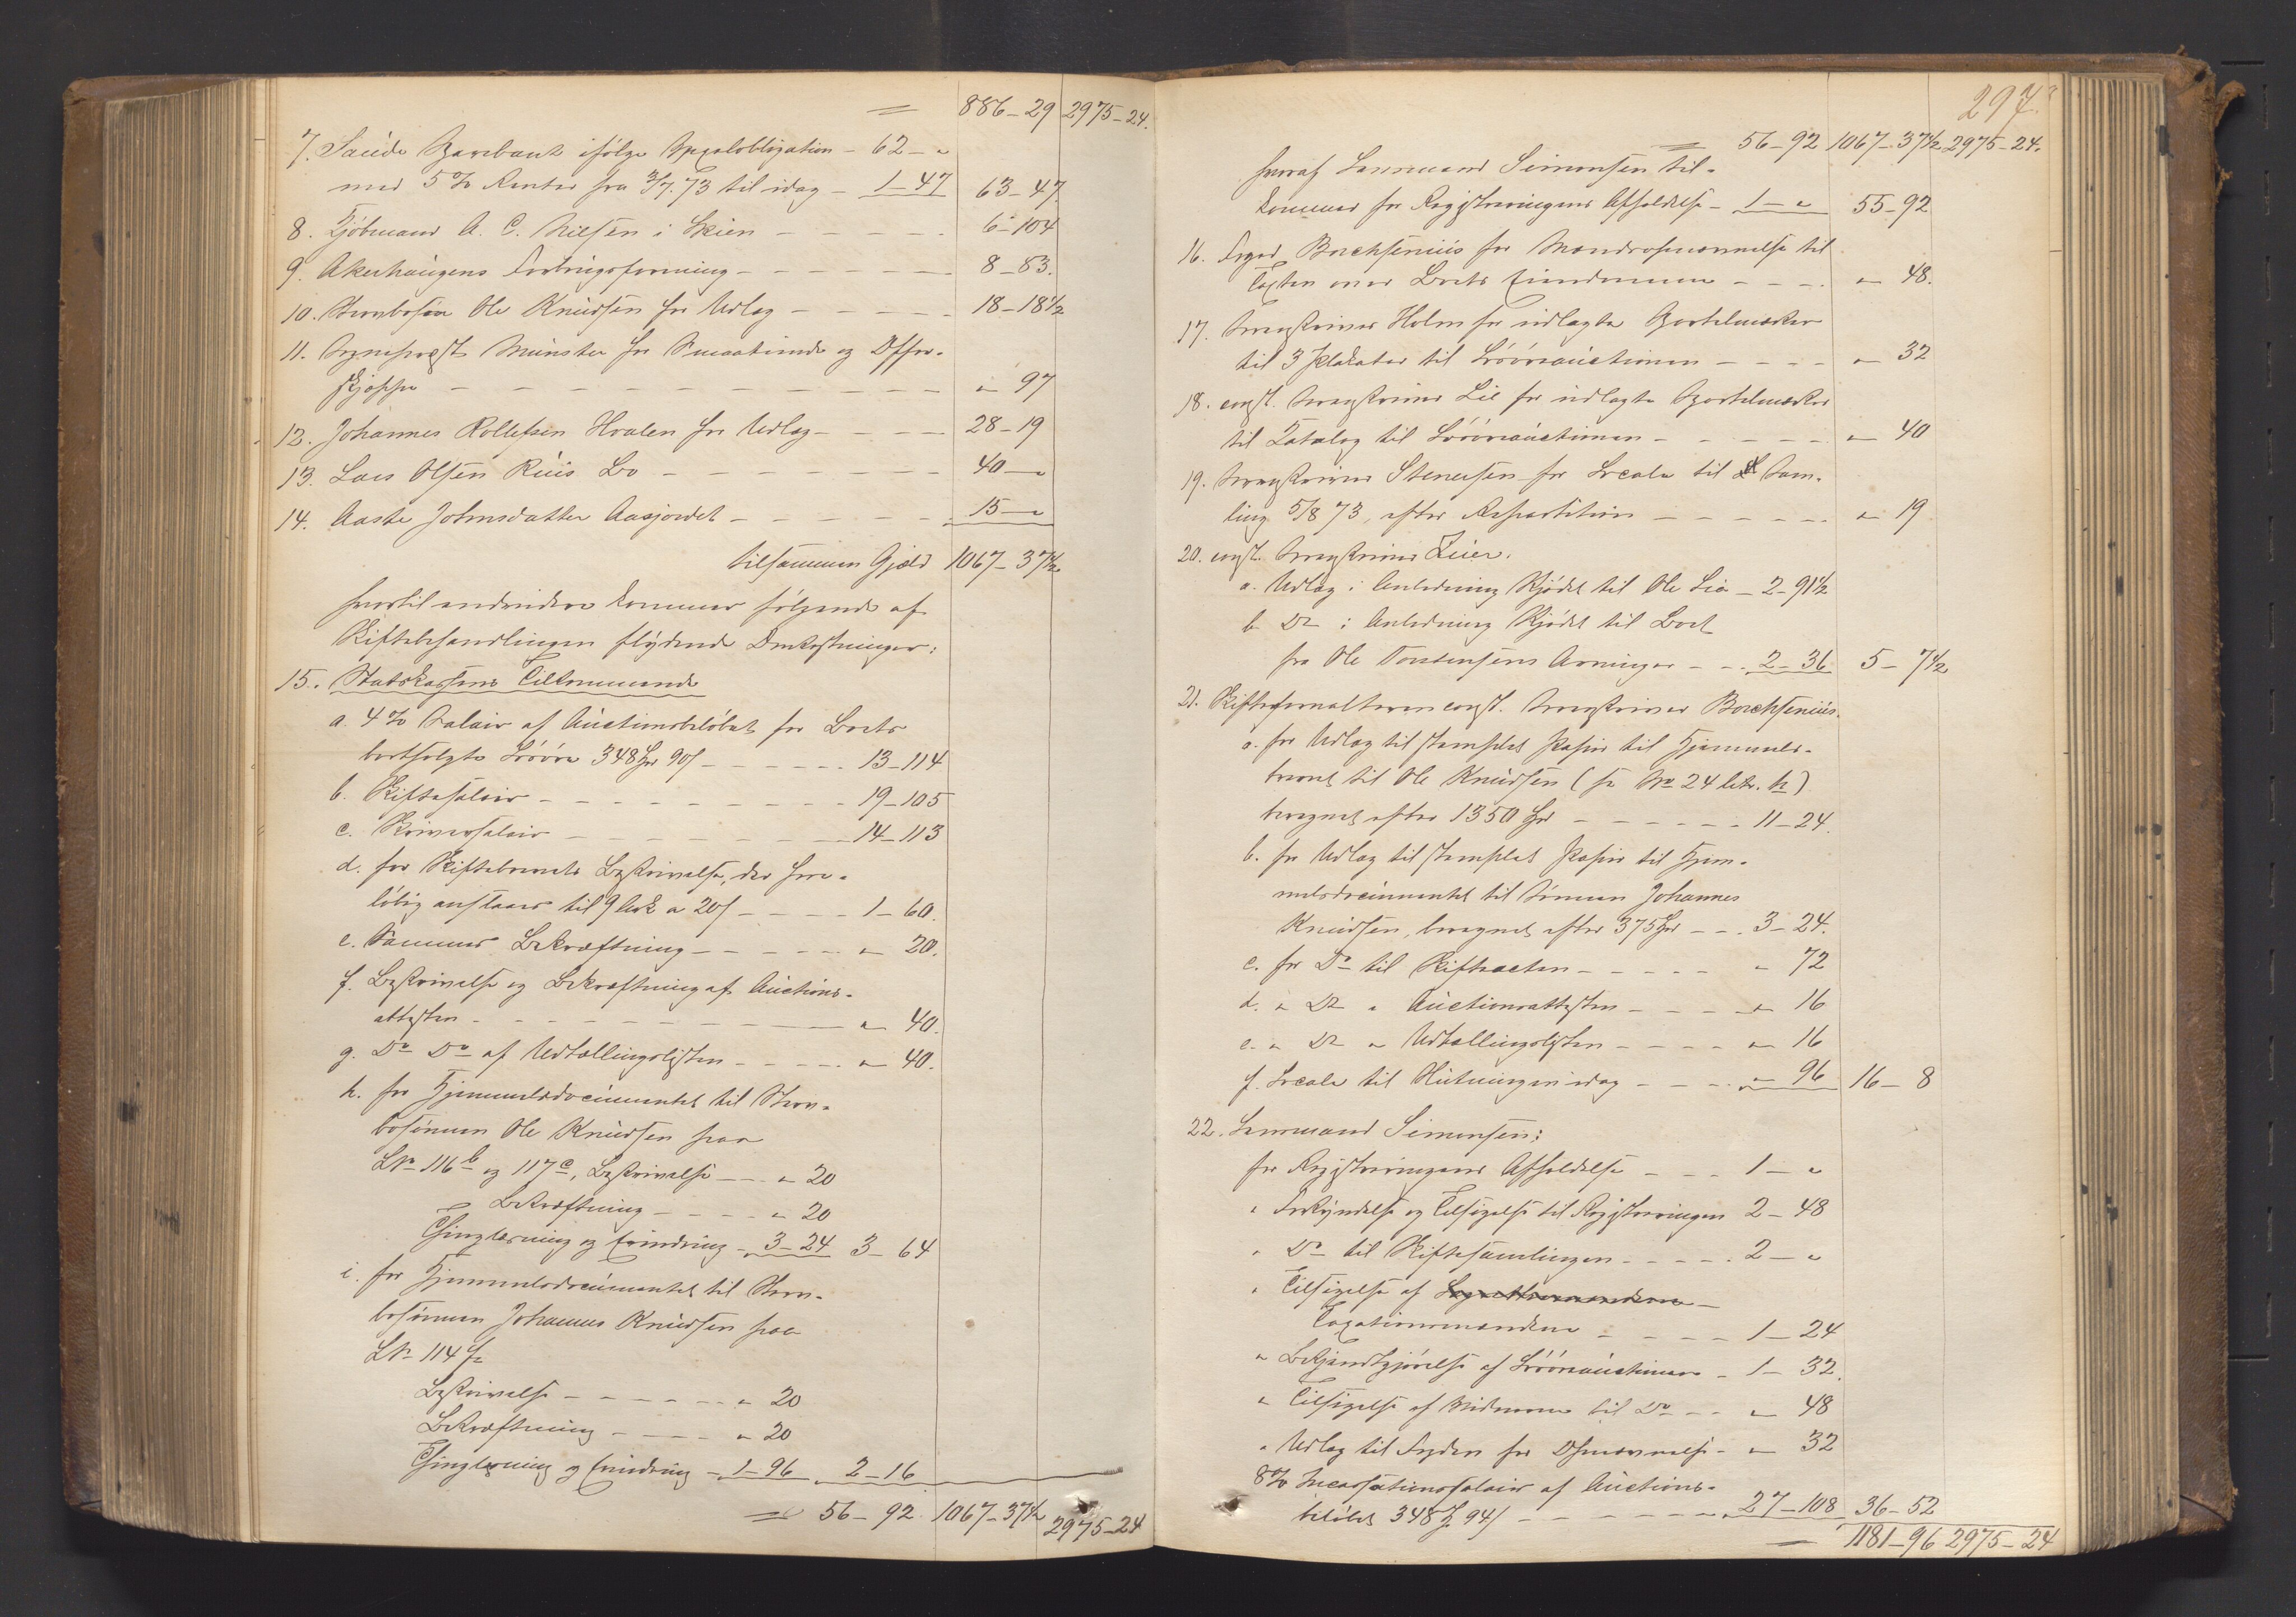 = 886-29 2975-24.
7. Saude Sparebank ifølge Spezialobligation - 62 - "
med 5 % Renter fra 3/7. 73 til idag - 1-47 63-47.
8. Kjøbmand A. C. Nilsen i Skien - - - - - 6-104
9. Akerhaugens Forbrugsforening - - - - - 8-83.
10. Stervbosøn Ole Knudsen for Udlæg - - - - - 18-18 1/2
11. Sogneprest Münster for Smaatiende og Offer-
skjæppe - - - - - - - - - " 97
12. Johannes Rollefsen Hvalen for Udlæg - - - - 28-19
13. Lars Olsen Ruis Bo - - - - - - - 40 - "
14. Aaste Johnsdatter Aasjordet - - - - - 15 - "
tilsammen Gjæld 1067-37 1/2
hvortil endvidere kommer følgende af
Skiftebehandlingen flydende Omkostninger:
15. Statskassens Tilkommende
a. 4 % Salair af Auctionsbeløbet for Boets
bortsolgte Løsøre 348 Spd 90 s - - - - - 13-114
b. Skiftesalair - - - - - - - - - 19-105
c. Skriversalair - - - - - - - - 14-113
d. for Skiftebrevets Beskrivelse, der fore-
løbig anslaaes til 9 Ark a 20 s - - - - 1-60.
e. Sammes Bekræftning - - - - - " 20.
f. Beskrivelse og Bekræftning af Auctions-
attesten - - - - - - - - - " 40.
g. Do Do af Udtællingslisten - - - - - " 40.
h. for Hjemmelsdocumentet til Sterv-
bosønnen Ole Knudsen paa
LNo 116 b og 117 c, Beskrivelse - - - " 20
Bekræftning - - - - " 20
Thinglæsning og Erindring - 3-24 3-64
i. for Hjemmelsdocumentet til Sterv-
bosønnen Johannes Knudsen paa
LNo 114 f
Beskrivelse - - - - - - - " 20
Bekræftning - - - - - " 20
Thinglæsning og Erindring - 1-96 2-16
= 56-92 1067-37 1/2 2975-24
297.
= 56-92 1067-37 1/2 2975-24.
hvoraf Lensmand Simonsen til-
kommer for Registreringens Afholdelse - 1 - " 55-92
16. Foged Borchsenius for Mændsopnævnelse til
Taxten over Boets Eiendomme - - - - " 48.
17. Sorenskriver Holm for udlagte Sportelmærker
til 3 Plakater til Løsøreauctionen - - - - " 32
18. const. Sorenskriver Lie for udlagte Sportelmærker
til Katalog til Løsøreauctionen - - - - - - " 40
19. Sorenskriver Stenersen for Locale til Sam-
ling 5/8 73, efter Repartition - - - - - - " 19
20. const. Sorenskriver Zeier.
a. Udlæg i Anledning Skjødet til Ole Lia - 2-91 1/2
b Do i Anledning Skjødet til Boet
fra Ole Torstensens Arvinger - - - 2-36 5-7 1/2
21. Skifteforvalteren const. Sorenskriver Borchsenius.
a. for Udlæg til stemplet Papir til Hjemmels-
brevet til Ole Knudsen (se No 24 litr. h)
beregnet efter 1350 Spd - - - - - - - 11-24.
b. for Udlæg til stemplet Papir til Hjem-
melsdocumentet til Sønnen Johannes
Knudsen, beregnet efter 375 Spd - - - 3-24.
c. for Do til Skifteacten - - - - - " 72
d. " Do " Auctionsattesten - - - - - " 16
e. " Do " Udtællingslisten - - - - - " 16
f. Locale til Slutningen idag - - - - " 96 16-8
22. Lensmand Simonsen:
for Registreringens Afholdelse - - - - 1 - "
" Forkyndelse og Tilsigelse til Registreringen 2-48
" Do til Skiftesamlingen - - - - - 2 - "
" Tilsigelse af
Taxationsmændene - - - - - 1-24
" Bekjendtgjørelse af Løsøreauctionen - 1-32.
" Tilsigelse af Vidnerne til Do - - - " 48
" Udlæg til Fogden for Opnævnelse - " 32
8 % Incassationssalair af Auctions-
beløbet 348 Spd 94 s - - - - - - - 27-108 36-52
= 1181-96 2975-24